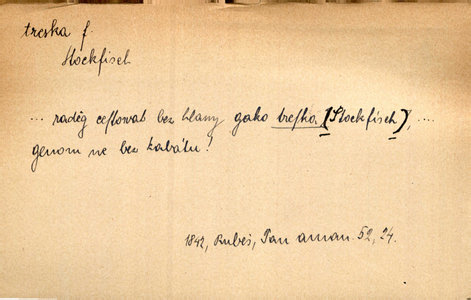 treska f.
Stockfisch
... raděg cestowat bez hlawy gako treska (Stockfisch), ....
genom ne bez kabátu!
1842, Rubeš, Pan aman. 52, 24.